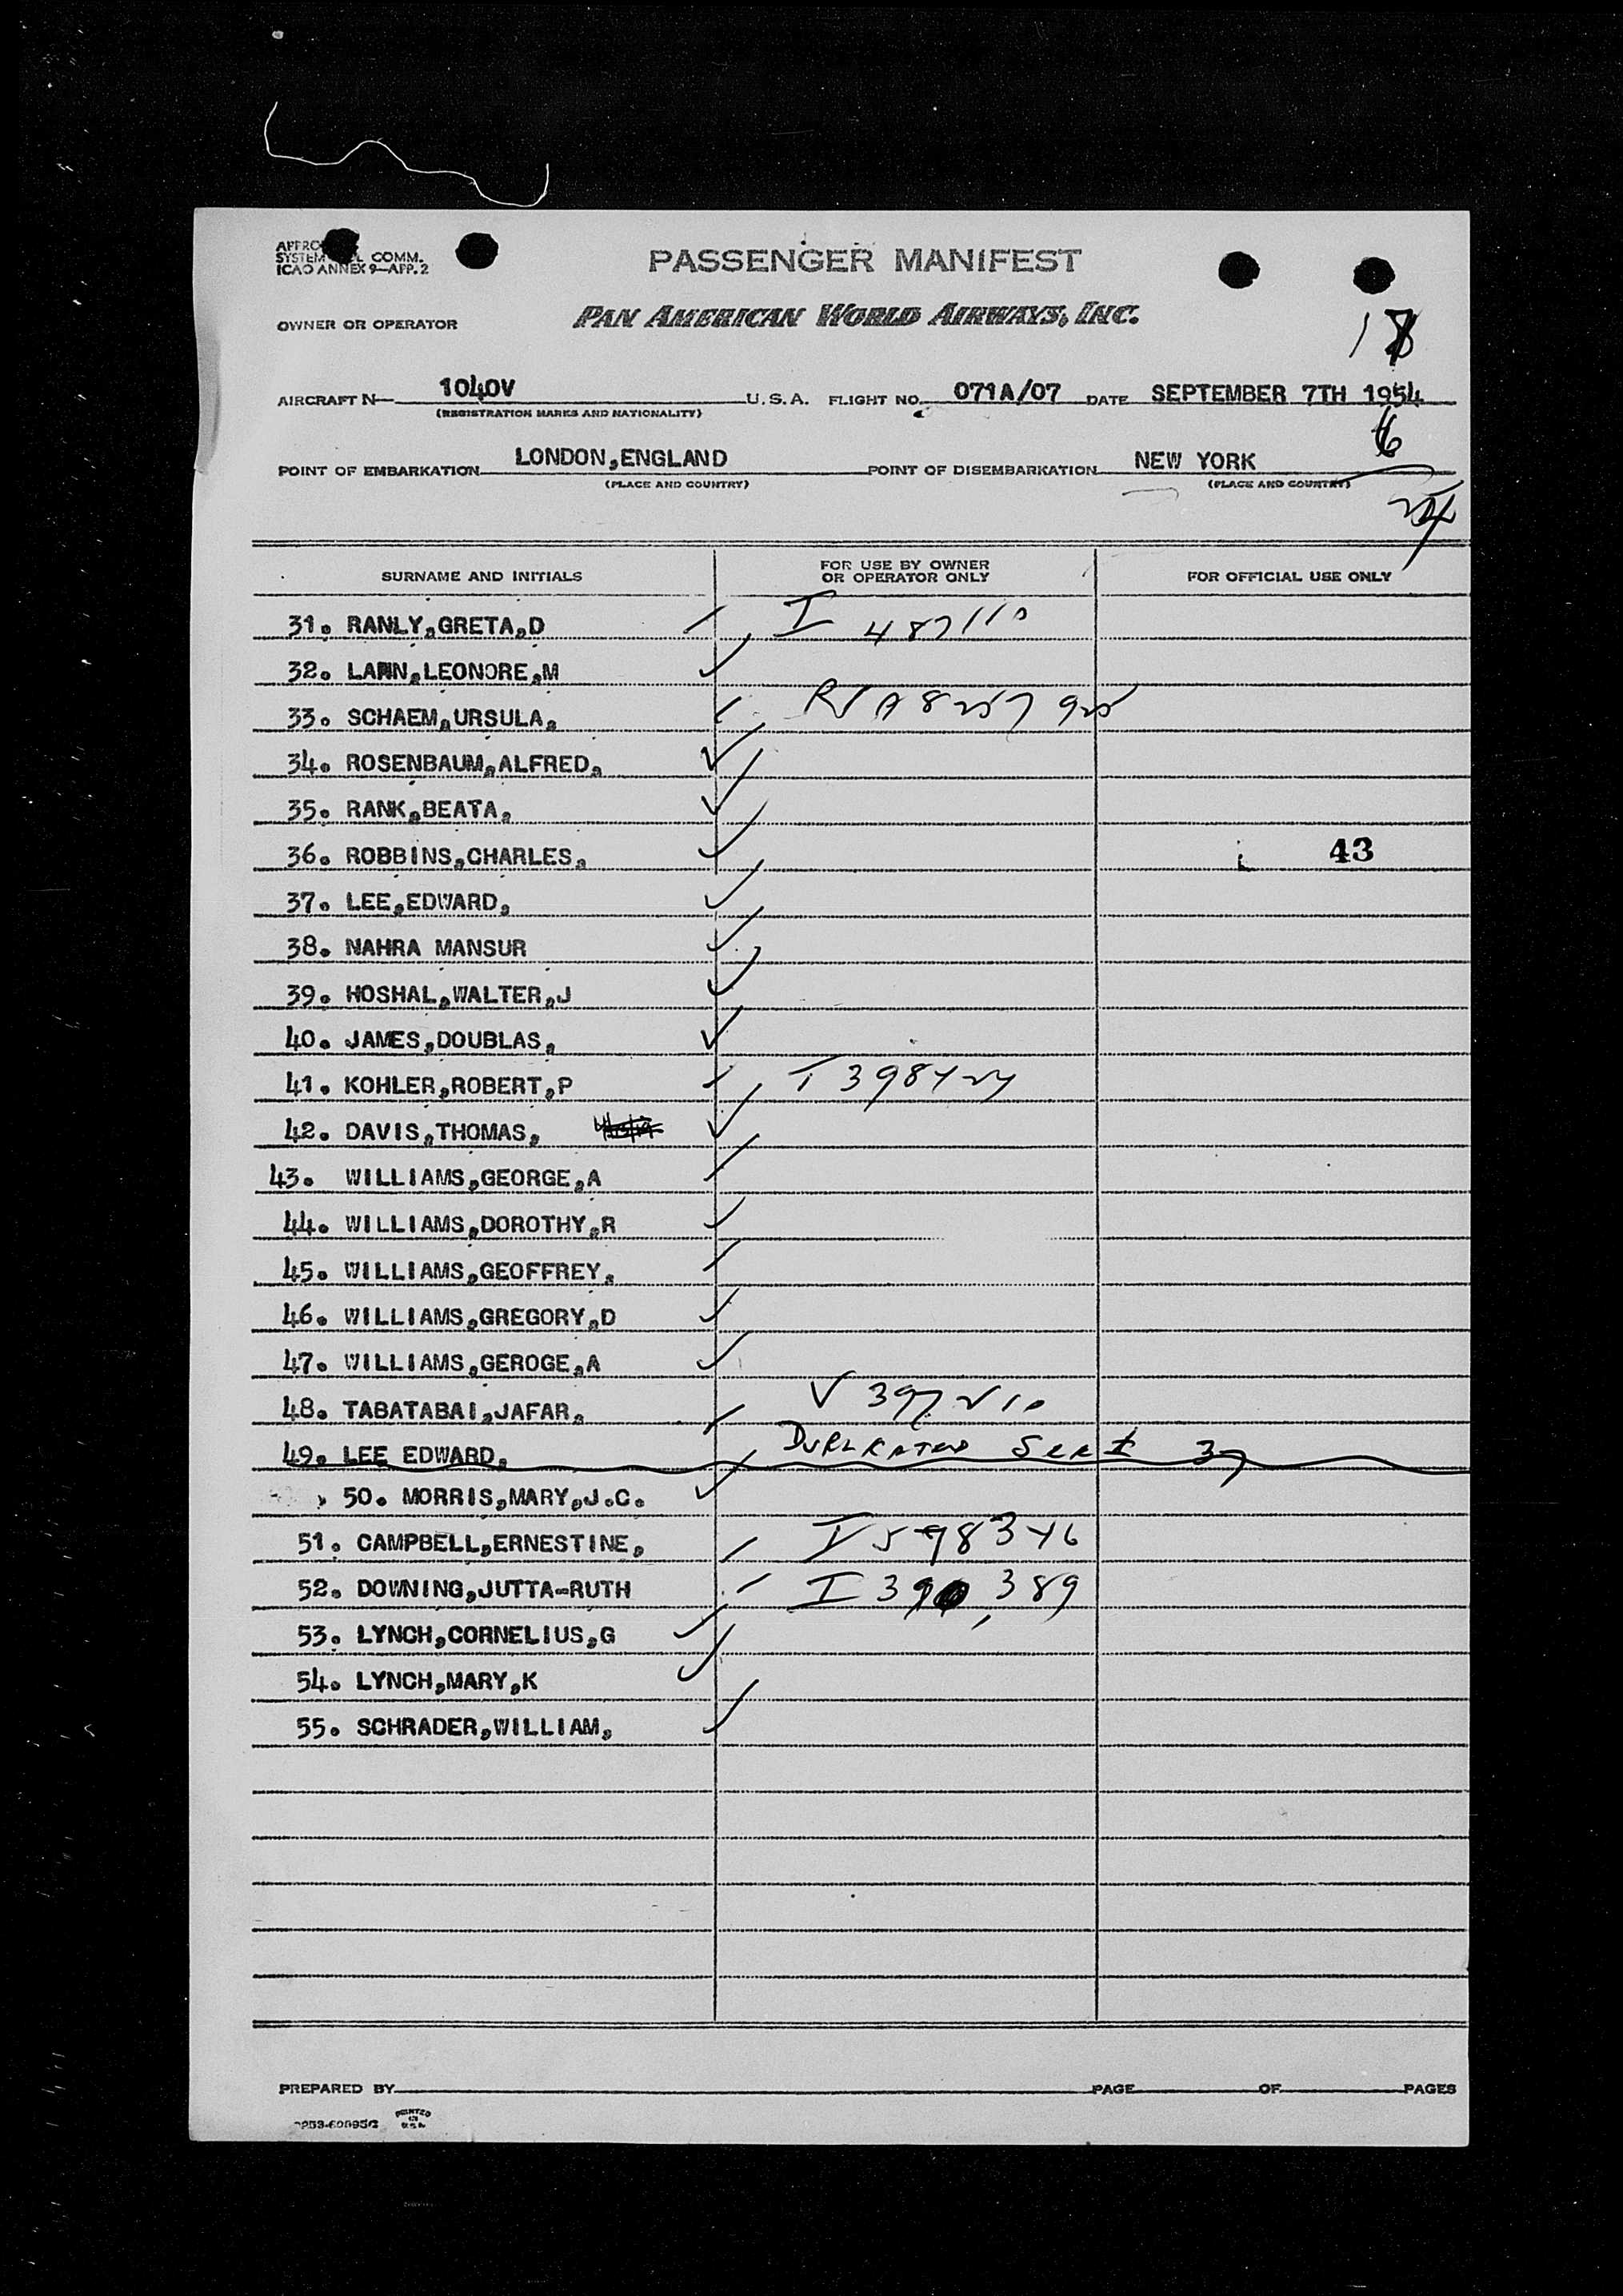 PASSENGER MANIFEST
SYSTEM COMM.
ICAO ANNEX 9—APP. 2
OWNER OR OPERATOR
PAN AMERICAN WORLD AIRWAYS, INC.
AIRCRAFT N— 1040V U.S.A. FLIGHT NO. 071A/07 DATE SEPTEMBER 7TH 1954
(REGISTRATION MARKS AND NATIONALITY)
POINT OF EMBARKATION LONDON,ENGLAND POINT OF DISEMBARKATION NEW YORK
(PLACE AND COUNTRY) (PLACE AND COUNTRY)
24
SURNAME AND INITIALS FOR USE BY OWNER OR OPERATOR ONLY FOR OFFICIAL USE ONLY
31. RANLY,GRETA,D I 487110
32. ,LEONORE,M
33. SCHAEM,URSULA,
34. ROSENBAUM,ALFRED,
35. RANK,BEATA,
36. ROBBINS,CHARLES, 43
37. LEE,EDWARD,
38. NAHRA MANSUR
39. HOSHAL,WALTER,J
40. JAMES,DOUBLAS,
41. KOHLER,ROBERT,P
42. DAVIS,THOMAS,
43. WILLIAMS,GEORGE,A
44. WILLIAMS,DOROTHY,R
45. WILLIAMS,GEOFFREY,
46. WILLIAMS,GREGORY,D
47. WILLIAMS,GEROGE,A
48. TABATABAI,JAFAR, V 397210
49. LEE EDWARD, 37
50. MORRIS,MARY,J.C.
51. CAMPBELL,ERNESTINE,
52. DOWNING,JUTTA-RUTH I 390,389
53. LYNCH,CORNELIUS,G
54. LYNCH,MARY,K
55. SCHRADER,WILLIAM,
PREPARED BY PAGE OF PAGES
PRINTED IN U.S.A.